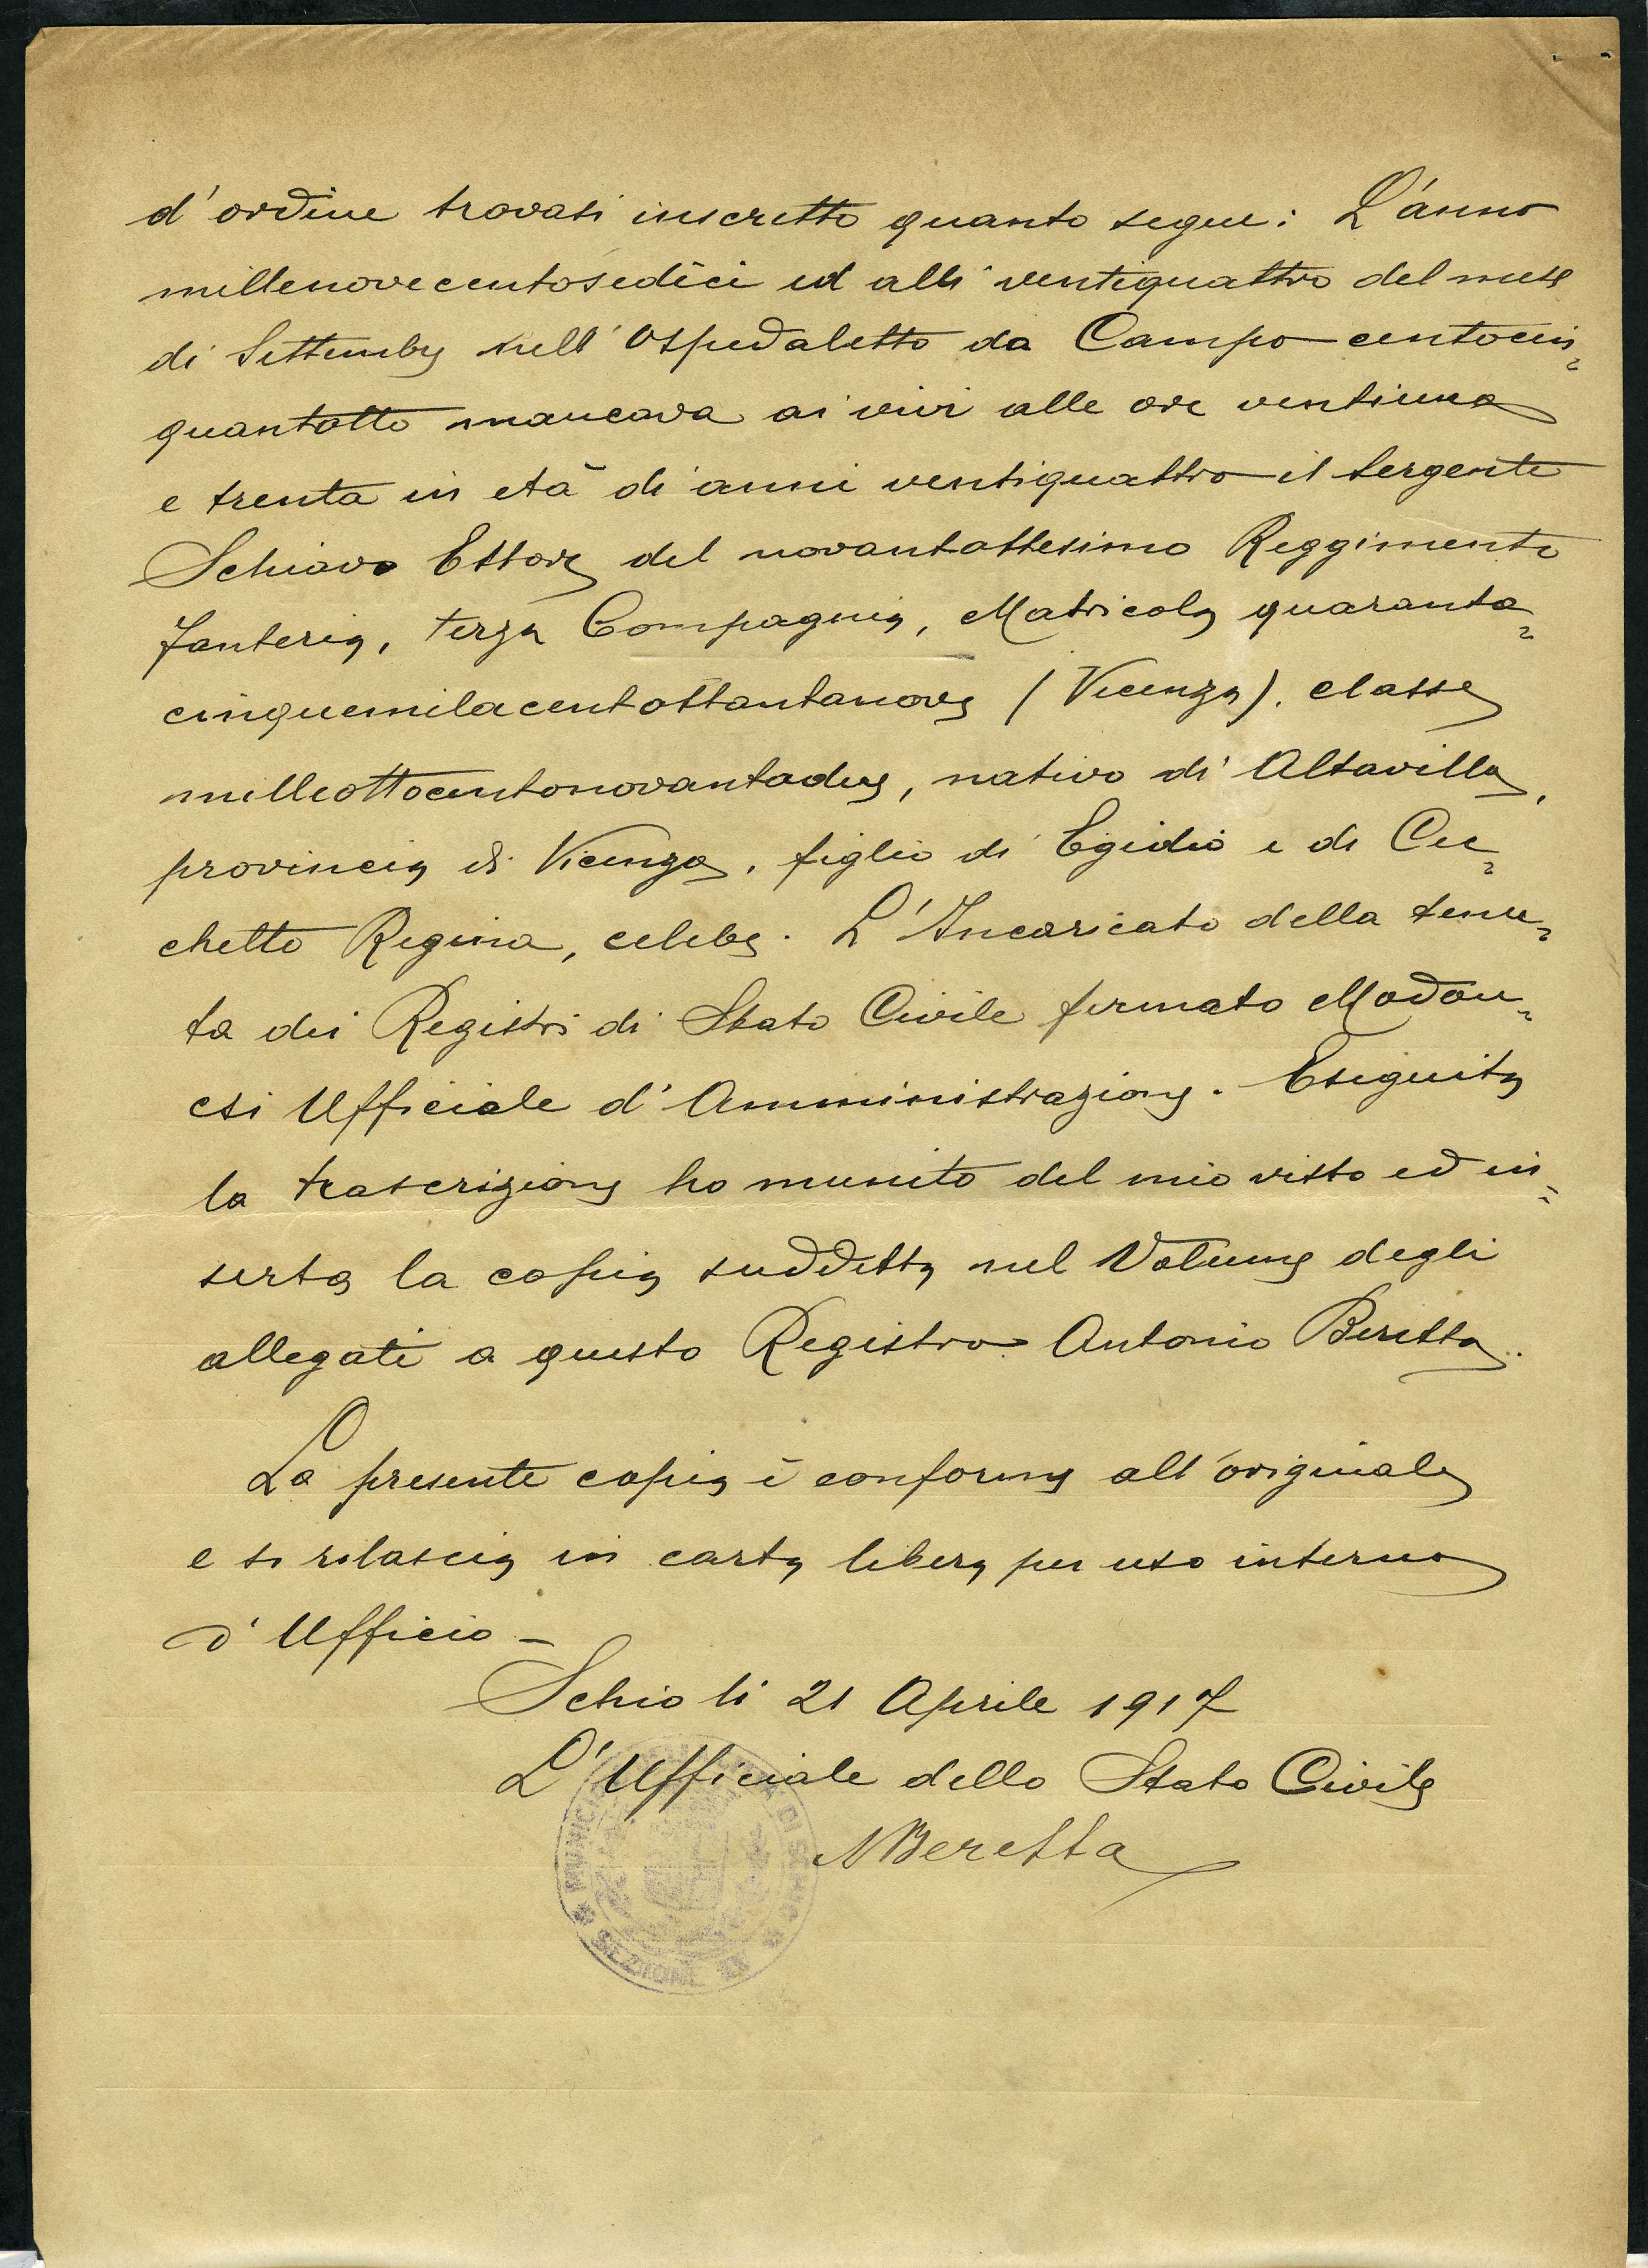 d'ordine trovasi inscritto quanto segue: L'anno
millenovecentosedici ed alli ventiquattro del mese
di Settembre nell'Ospedaletto da Campo centocin=
quantotto mancava ai vivi alle ore ventiuna
e trenta in età di anni ventiquattro il Sergente
Schiavo Ettore del novantottesimo Reggimento
Fanteria, terza Compagnia, Matricola quaranta=
cinquemilacentottantanove (Vicenza). classe
milleottocentonovantadue, nativo di Altavilla,
provincia di Vicenza, figlio di Egidio e di Cec=
chetto Regina, celibe. L'Incaricato della tenu=
ta dei Registri di Stato Civile firmato Modon=
esi Ufficiale d'Amministrazione. Eseguita
la trascrizione ho munito del mio visto ed in=
serta la copia suddetta nel Volume degli
allegati a questo Registro. Antonio Beretta.
La presente copia è conforme all'originale
e si rilascia in carta libera per uso interno
d'Ufficio -
Schio li 21 Aprile 1917
L'Ufficiale dello Stato Civile
ABeretta
MUNICIPIO DI SCHIO
SEZIONE